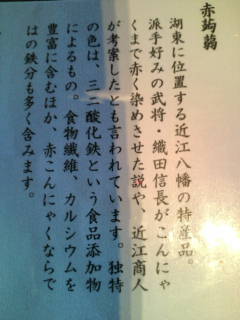 赤蒟蒻
湖東に位置する近江八幡の特産品。
派手好みの武将・織田信長がこんにゃ
くまで赤く染めさせた説や、近江商人
が考案したとも言われています。独特
の色は、三二酸化鉄という食品添加物
によるもの。食物繊維、カルシウムを
豊富に含むほか、赤こんにゃくならで
はの鉄分も多く含みます。